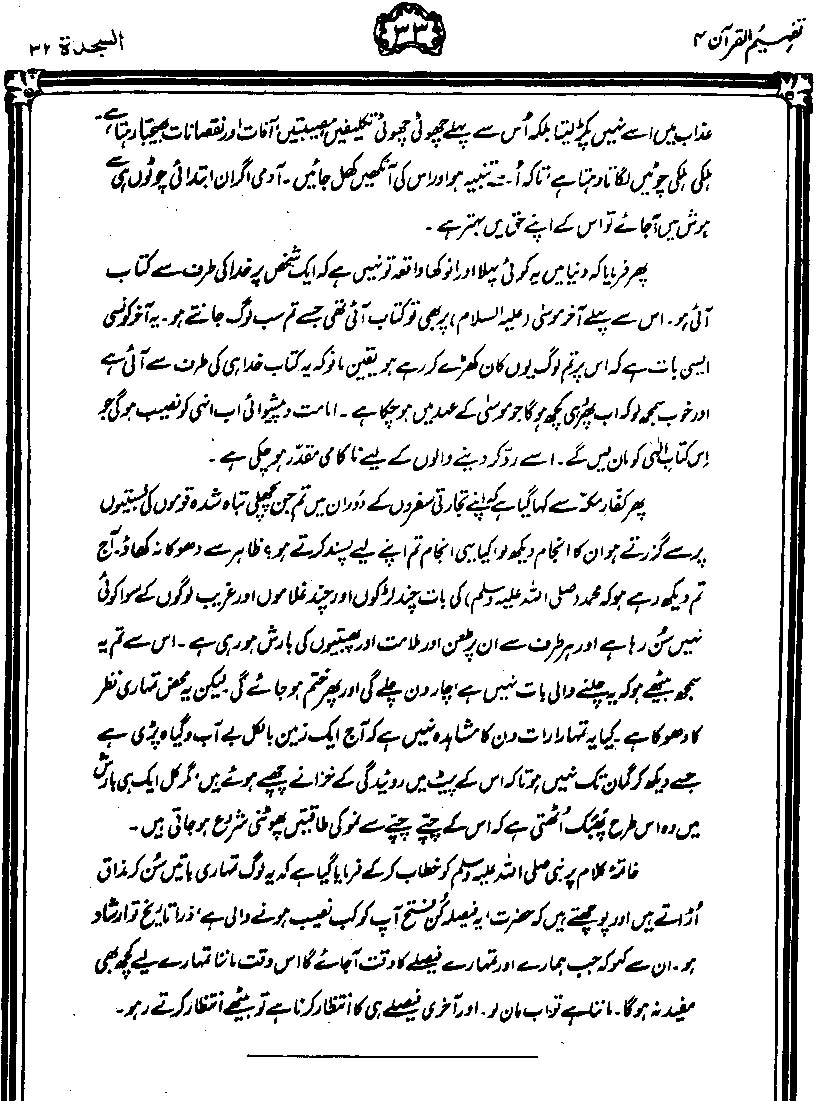 تفہیم القرآن ۴
۳۳
السجدة ۳۲
عذاب میں اسے نہیں پکڑ لیتا بلکہ اُس سے پہلے چھوٹی چھوٹی تکلیفیں، مصیبتیں، آفات اور نقصانات بھیجتا رہتا ہے۔
ہلکی ہلکی چوٹیں لگاتا رہتا ہے، تاکہ اُسے تنبیہ ہو اور اس کی آنکھیں کھل جائیں۔ آدمی اگر ان ابتدائی چوٹوں ہی سے
ہوش میں آجائے تو اس کے اپنے حق میں بہتر ہے۔
پھر فرمایا کہ دنیا میں یہ کوئی پہلا اور انوکھا واقعہ تو نہیں ہے کہ ایک شخص پر خدا کی طرف سے کتاب
آئی ہو۔ اس سے پہلے آخر موسٰی (علیہ السلام) پر بھی تو کتاب آئی تھی جسے تم سب لوگ جانتے ہو۔ یہ آخر کونسی
ایسی بات ہے کہ اس پر تم لوگ یوں کان کھڑے کر رہے ہو۔ یقین مانو کہ یہ کتاب خدا ہی کی طرف سے آئی ہے
اور خوب سمجھ لو کہ اب پھر وہی کچھ ہوگا جو موسٰی کے عہد میں ہو چکا ہے۔ امامت و پیشوائی اب انہی کو نصیب ہوگی جو
اِس کتابِ الٰہی کو مان لیں گے۔ اسے رد کر دینے والوں کے لیے ناکامی مقدّر ہو چکی ہے۔
پھر کفارِ مکّہ سے کہا گیا ہے کہ اپنے تجارتی سفروں کے دَوران میں تم جن پچھلی تباہ شدہ قوموں کی بستیوں
پر سے گزرتے ہو ان کا انجام دیکھ لو۔ کیا یہی انجام تم اپنے لیے پسند کرتے ہو؟ ظاہر سے دھوکا نہ کھاؤ۔ آج
تم دیکھ رہے ہو کہ محمد (صلی اللہ علیہ وسلم) کی بات چند لڑکوں اور چند غلاموں اور غریب لوگوں کے سوا کوئی
نہیں سُن رہا ہے اور ہر طرف سے ان پر طعن اور ملامت اور پھبتیوں کی بارش ہو رہی ہے۔ اس سے تم یہ
سمجھ بیٹھے ہو کہ یہ چلنے والی بات نہیں ہے، چار دن چلے گی اور پھر ختم ہو جائے گی۔ لیکن یہ محض تمہاری نظر
کا دھوکا ہے۔ کیا یہ تمہارا رات دن کا مشاہدہ نہیں ہے کہ آج ایک زمین بالکل بے آب و گیاہ پڑی ہے
جسے دیکھ کر گمان تک نہیں ہوتا کہ اس کے پیٹ میں روئیدگی کے خزانے چھپے ہوئے ہیں، مگر کل ایک ہی بارش
میں وہ اس طرح پھبک اُٹھتی ہے کہ اس کے چپّے چپّے سے نمو کی طاقتیں پھوٹنی شروع ہو جاتی ہیں۔
خاتمۂ کلام پر نبی صلی اللہ علیہ وسلم کو خطاب کر کے فرمایا گیا ہے کہ یہ لوگ تمہاری باتیں سُن کر مذاق
اُڑاتے ہیں اور پوچھتے ہیں کہ حضرت، یہ فیصلہ کُن فتح آپ کو کب نصیب ہونے والی ہے، ذرا تاریخ تو ارشاد
ہو۔ ان سے کہو کہ جب ہمارے اور تمہارے فیصلے کا وقت آجائے گا اس وقت ماننا تمہارے لیے کچھ بھی
مفید نہ ہوگا۔ ماننا ہے تو اب مان لو۔ اور آخری فیصلے ہی کا انتظار کرنا ہے تو بیٹھے انتظار کرتے رہو۔